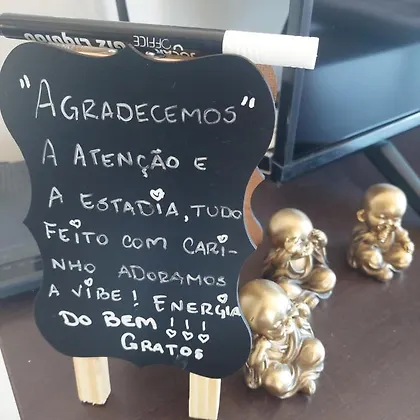 Giz Líquido
OFFICE
"AGRADECEMOS"
A ATENÇÃO E
A ESTADIA, TUDO
FEITO COM CARI-
NHO ADORAMOS
A VIBE! ENERGIA
DO BEM !!!
GRATOS